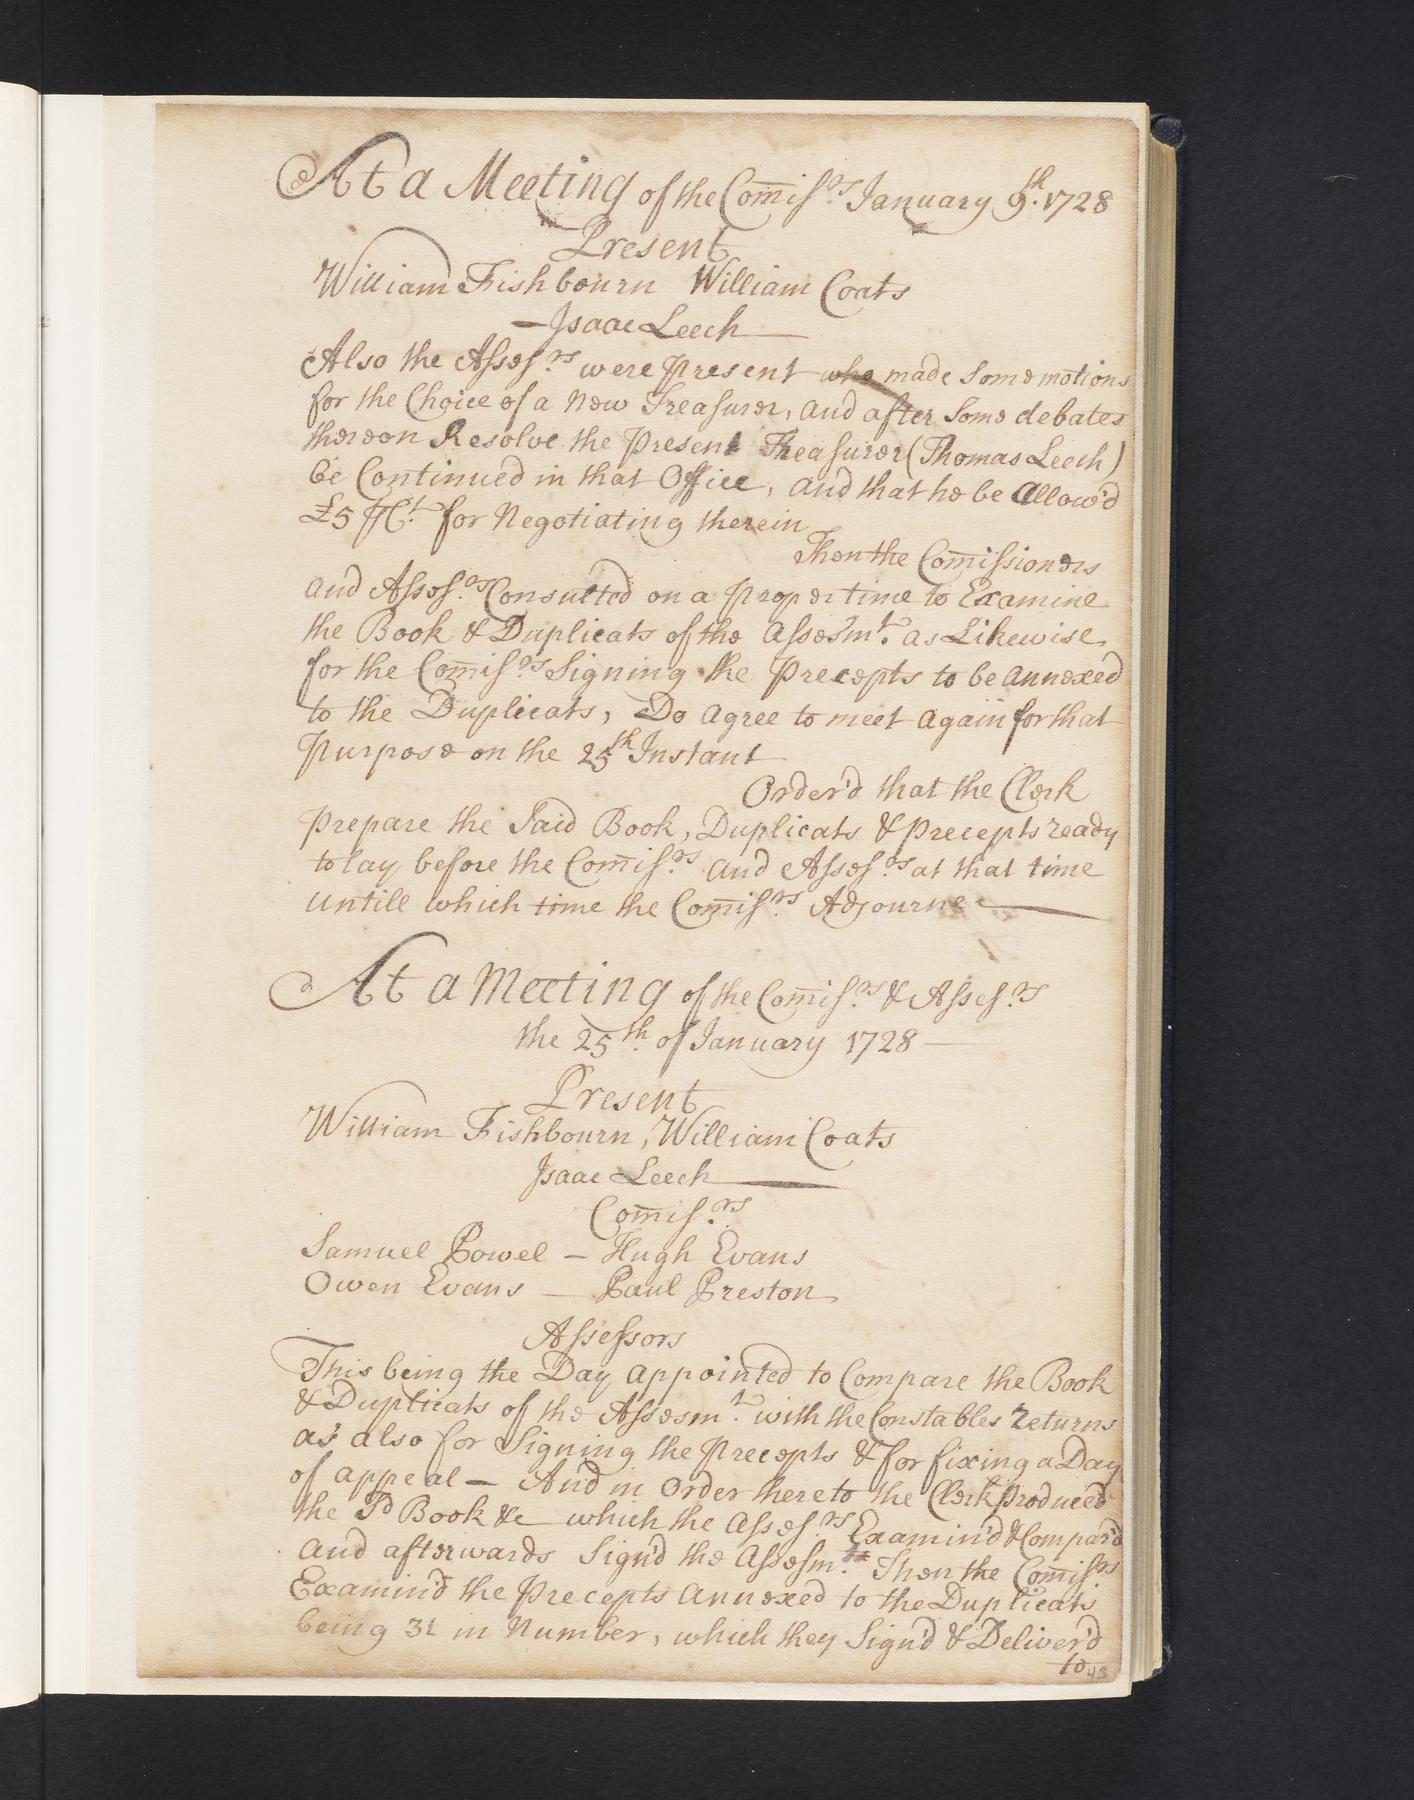 At a Meeting of the Com̄isrs. January 9th. 1728
Present
William Fishbourn William Coats
— Isaac Leech —
Also the Assesrs. were Present who made some motions
for the Choice of a New Treasurer, and after some debates
thereon Resolve the Present Treasurer (Thomas Leech)
be Continued in that Office, and that he be Allow'd
£5 ⅌ Ct. for Negotiating therein
Then the Com̄issioners
and Assesrs. Consulted on a Proper time to Examine
the Book & Duplicats of the Assesmt. as Likewise
for the Com̄isrs. Signing the Precepts to be annexed
to the Duplicats, Do agree to meet again for that
Purpose on the 25th Instant
Order'd that the Clerk
Prepare the Said Book, Duplicats & Precepts ready
to lay before the Com̄isrs. and Assesrs. at that time
untill which time the Com̄isrs. Adjourne —
At a Meeting of the Com̄isrs. & Assesrs.
the 25th. of January 1728 —
Present
William Fishbourn, William Coats
Isaac Leech —
Com̄isrs.
Samuel Powel — Hugh Evans
Owen Evans — Paul Preston
Assessors
This being the Day appointed to Compare the Book
& Duplicats of the Assesmt. with the Constables returns
as also for Signing the Precepts & for fixing a Day
of appeal — And in Order thereto the Clerk produced
the Sd Book &c which the Assesrs. Examin'd & Compar'd
and afterwards Sign'd the Assesmt. Then the Com̄isrs
Examin'd the Precepts annexed to the Duplicats
being 31 in Number, which they Sign'd & Deliver'd
to
43